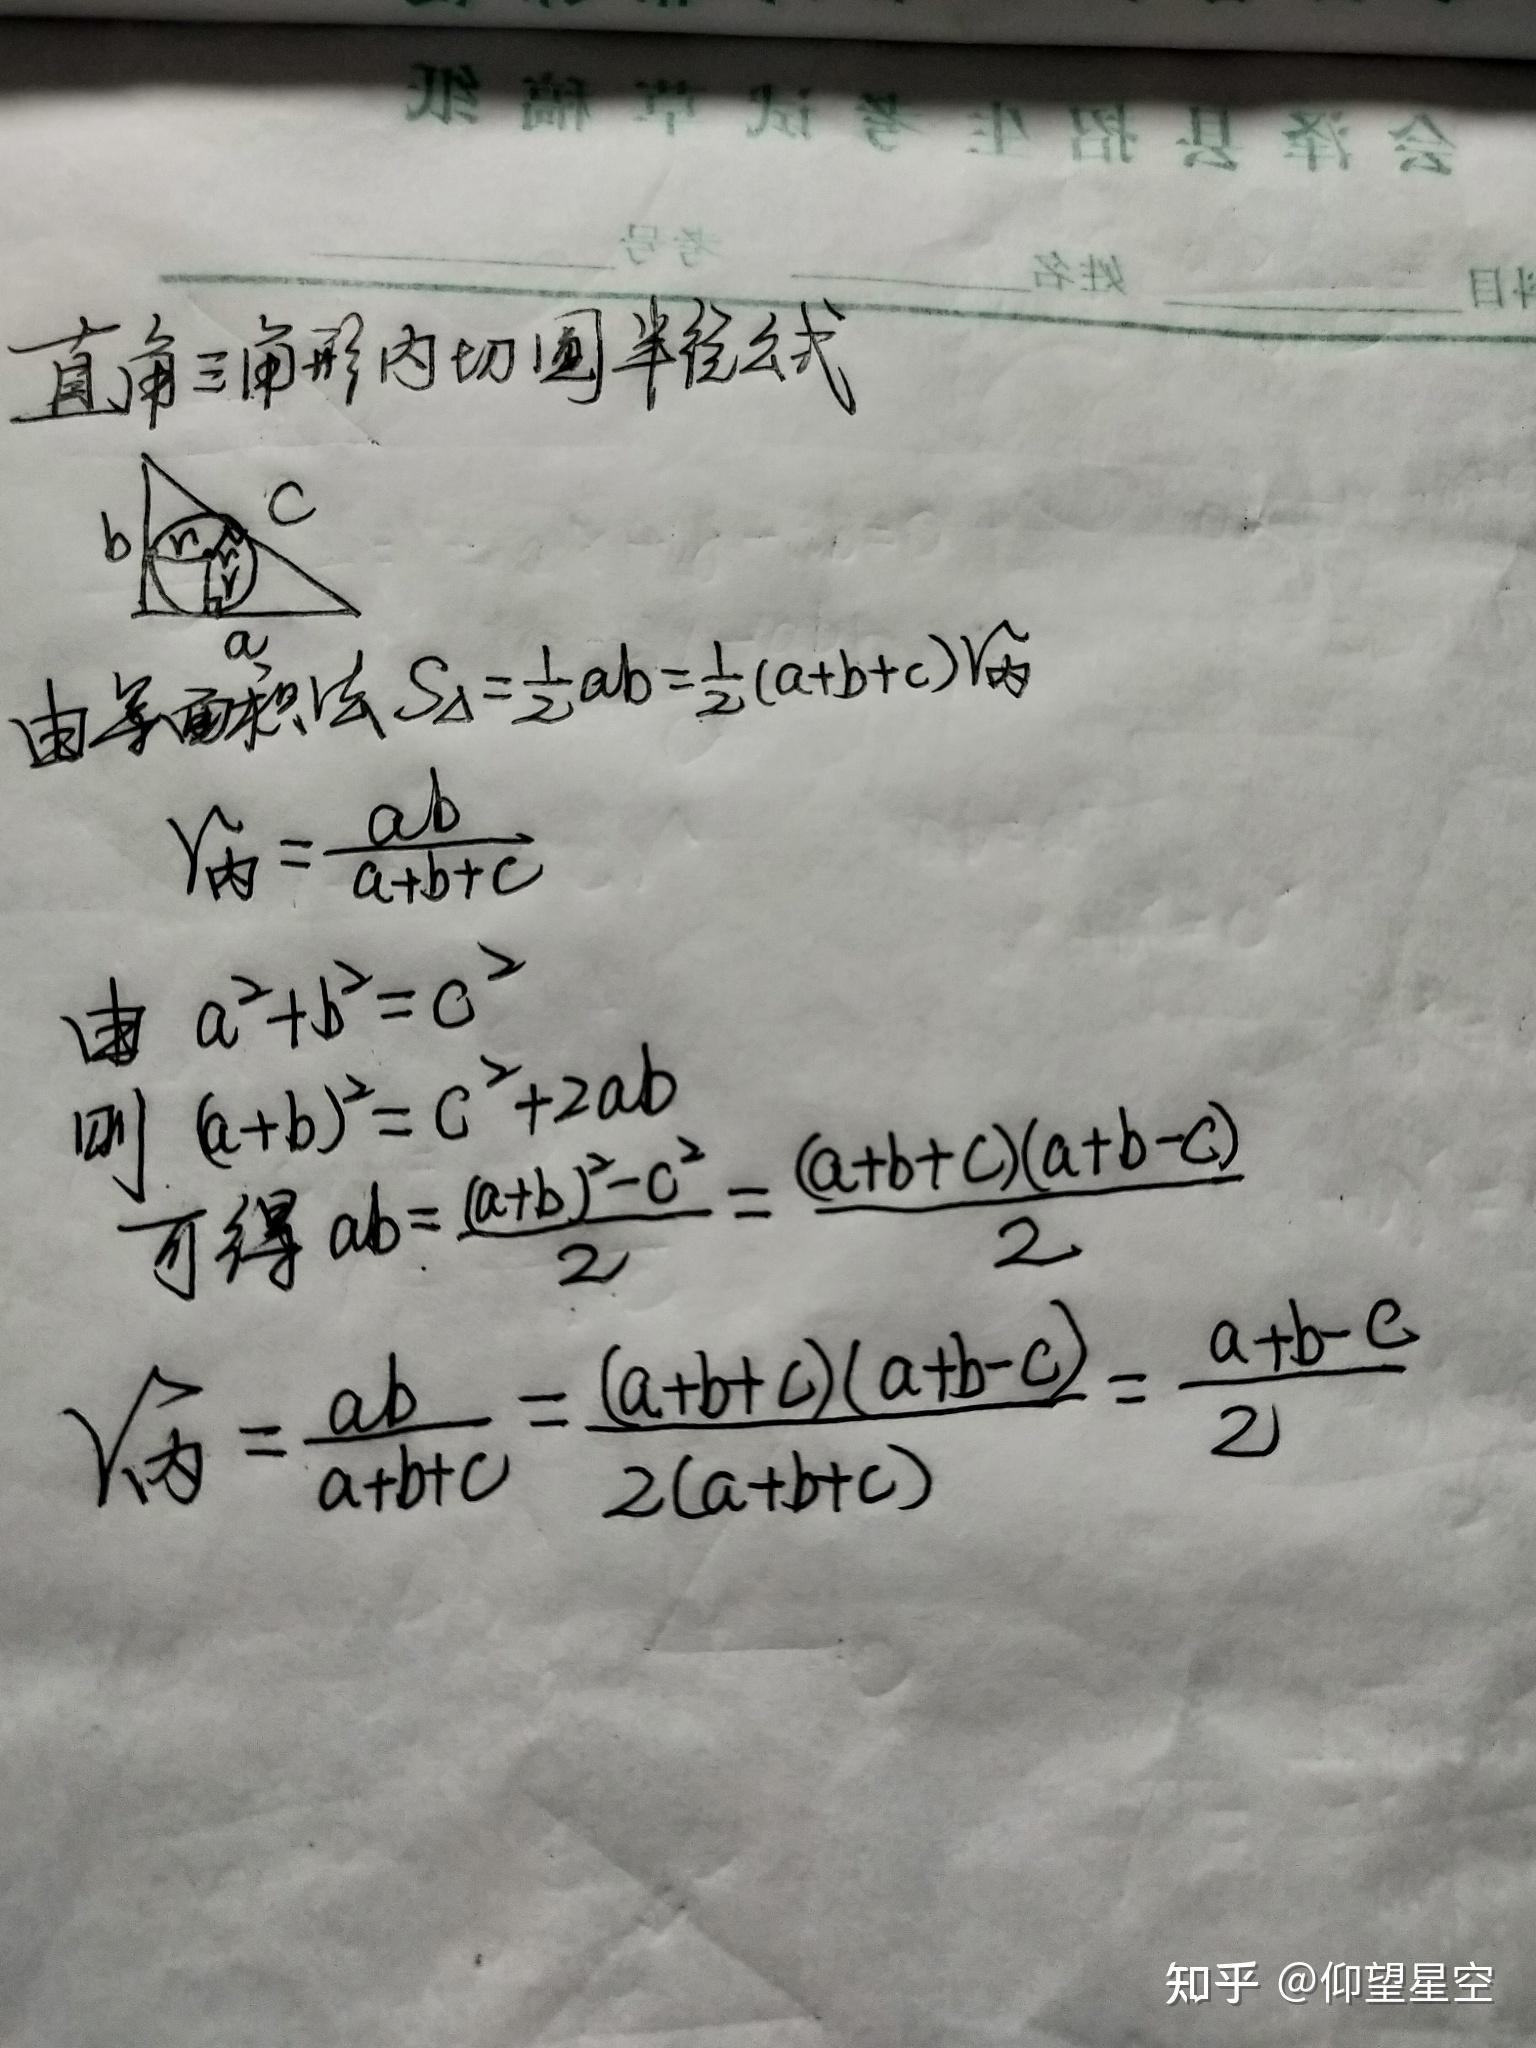 会泽县招生考试草稿纸
科目 姓名 考号
直角三角形内切圆半径公式
b
c
r
r
r
a
由等面积法 S△=½ab=½(a+b+c)r内
r内=ab/(a+b+c)
由 a²+b²=c²
则 (a+b)²=c²+2ab
可得 ab=((a+b)²-c²)/2=(a+b+c)(a+b-c)/2
r内=ab/(a+b+c)=(a+b+c)(a+b-c)/2(a+b+c)=(a+b-c)/2
知乎 @仰望星空